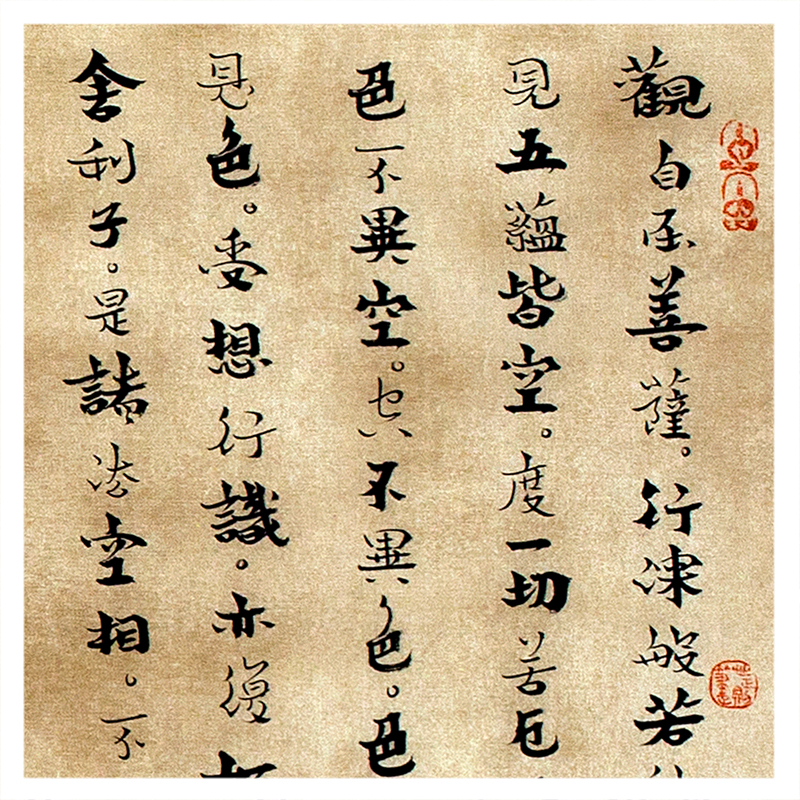 觀自在菩薩。行深般若
見五蘊皆空。度一切苦厄
色不異空。空不異色。色
是色。受想行識。亦復
舍利子。是諸法空相。不